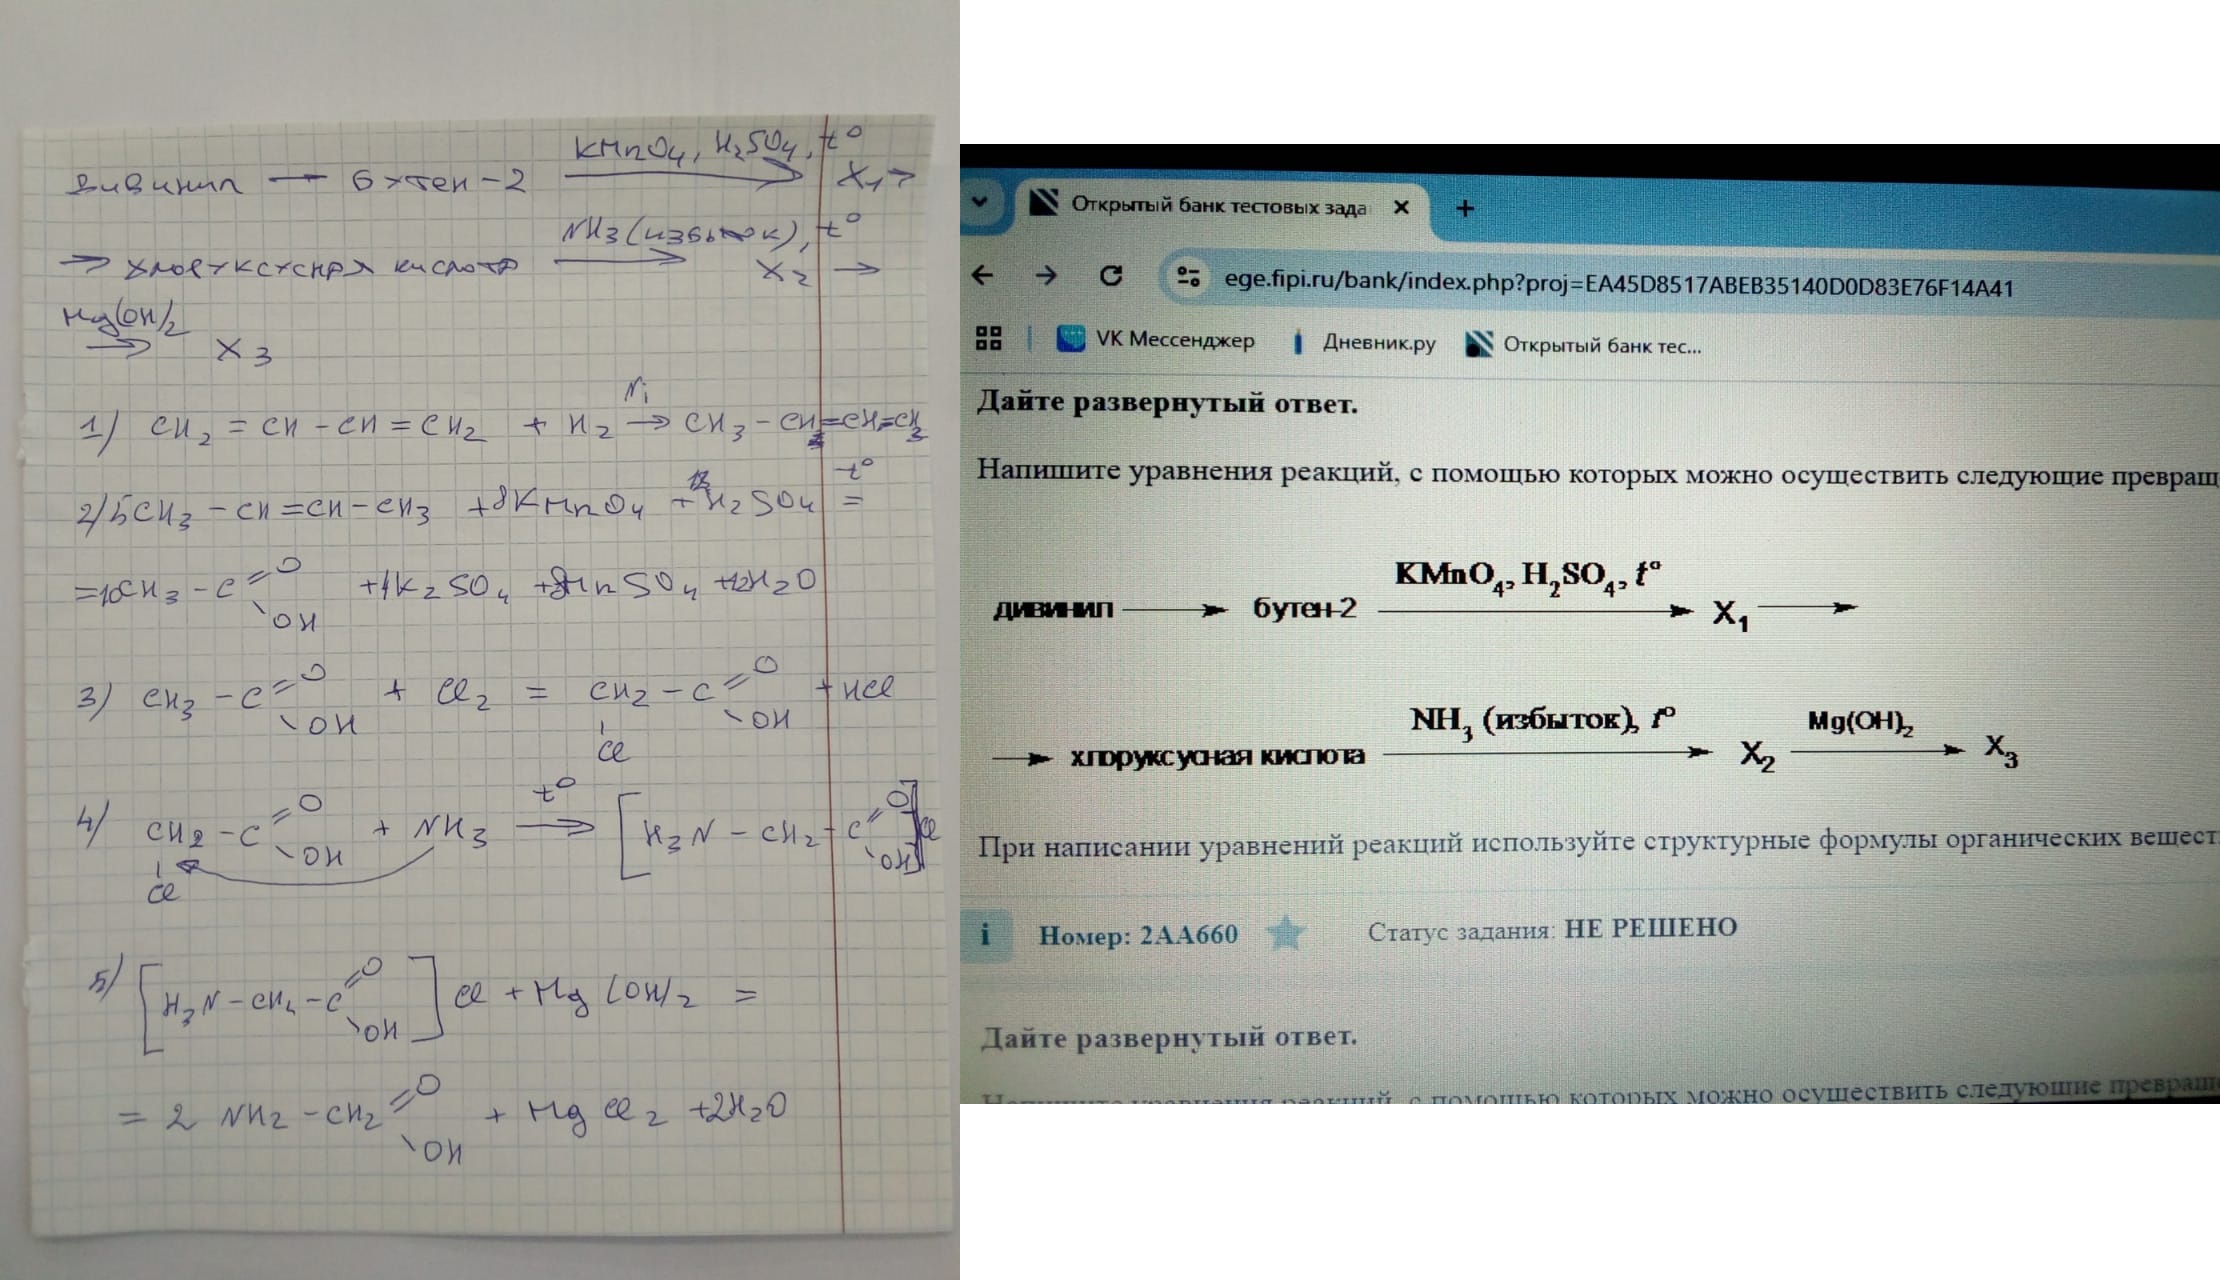 дивинил → бутен-2 KMnO₄, H₂SO₄, t° → X₁ →
→ хлоруксусная кислота NH₃(избыток), t° → X₂ →
Mg(OH)₂ → X₃
1) CH₂ = CH - CH = CH₂ + H₂ Ni → CH₃ - CH = CH = CH₃
2) 5CH₃ - CH = CH - CH₃ + 8KMnO₄ + 12H₂SO₄ t° =
= 10CH₃ - C =O \OH + 4K₂SO₄ + 8MnSO₄ + 12H₂O
3) CH₃ - C =O \OH + Cl₂ = CH₂ - C =O \OH + HCl
Cl
4) CH₂ - C =O \OH + NH₃ t° → [H₃N - CH₂ - C =O \OH]Cl
Cl
5) [H₃N - CH₂ - C =O \OH] Cl + Mg(OH)₂ =
= 2 NH₂ - CH₂ =O \OH + MgCl₂ + 2H₂O
Открытый банк тестовых зада
ege.fipi.ru/bank/index.php?proj=EA45D8517ABEB35140D0D83E76F14A41
VK Мессенджер Дневник.ру Открытый банк тес...
Дайте развернутый ответ.
Напишите уравнения реакций, с помощью которых можно осуществить следующие превращ
дивинил → бутен-2 KMnO₄, H₂SO₄, t° → X₁ →
→ хлоруксусная кислота NH₃ (избыток), t° → X₂ Mg(OH)₂ → X₃
При написании уравнений реакций используйте структурные формулы органических вещест
i Номер: 2AA660 Статус задания: НЕ РЕШЕНО
Дайте развернутый ответ.
Напишите уравнения реакций, с помощью которых можно осуществить следующие превращ